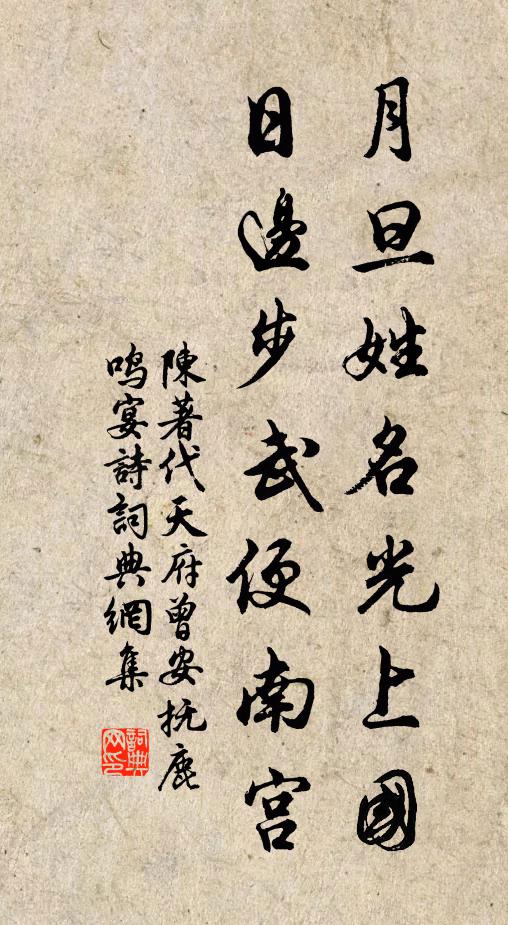 月旦姓名光上國
日邊步武便南宮
陳著代天府曾安抚鹿
鳴宴詩詞典網集
詞典網印